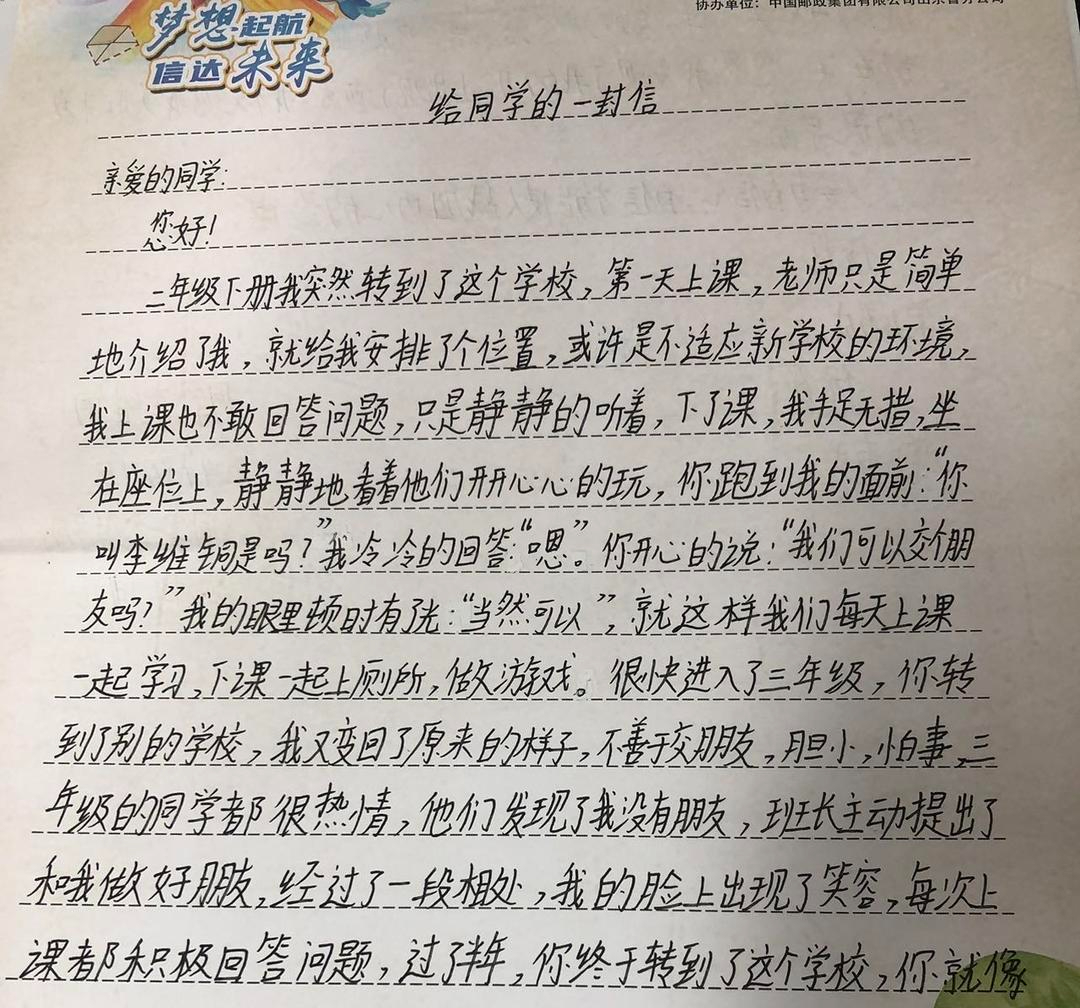 协办单位：中国邮政集团有限公司山东省分公司
梦想起航
信达未来
给同学的一封信
亲爱的同学：
您好！
二年级下册我突然转到了这个学校，第一天上课，老师只是简单
地介绍了我，就给我安排了个位置，或许是不适应新学校的环境，
我上课也不敢回答问题，只是静静的听着，下了课，我手足无措，坐
在座位上，静静地看着他们开开心心的玩，你跑到我的面前：“你
叫李维铜是吗？”我冷冷的回答：“嗯”。你开心的说：“我们可以交个朋
友吗？”我的眼里顿时有了光：“当然可以”，就这样我们每天上课
一起学习，下课一起上厕所，做游戏。很快进入了三年级，你转
到了别的学校，我又变回了原来的样子，不善于交朋友，胆小，怕事，三
年级的同学都很热情，他们发现了我没有朋友，班长主动提出了
和我做好朋友，经过了一段相处，我的脸上出现了笑容，每次上
课都积极回答问题，过了半年，你终于转到了这个学校，你就像